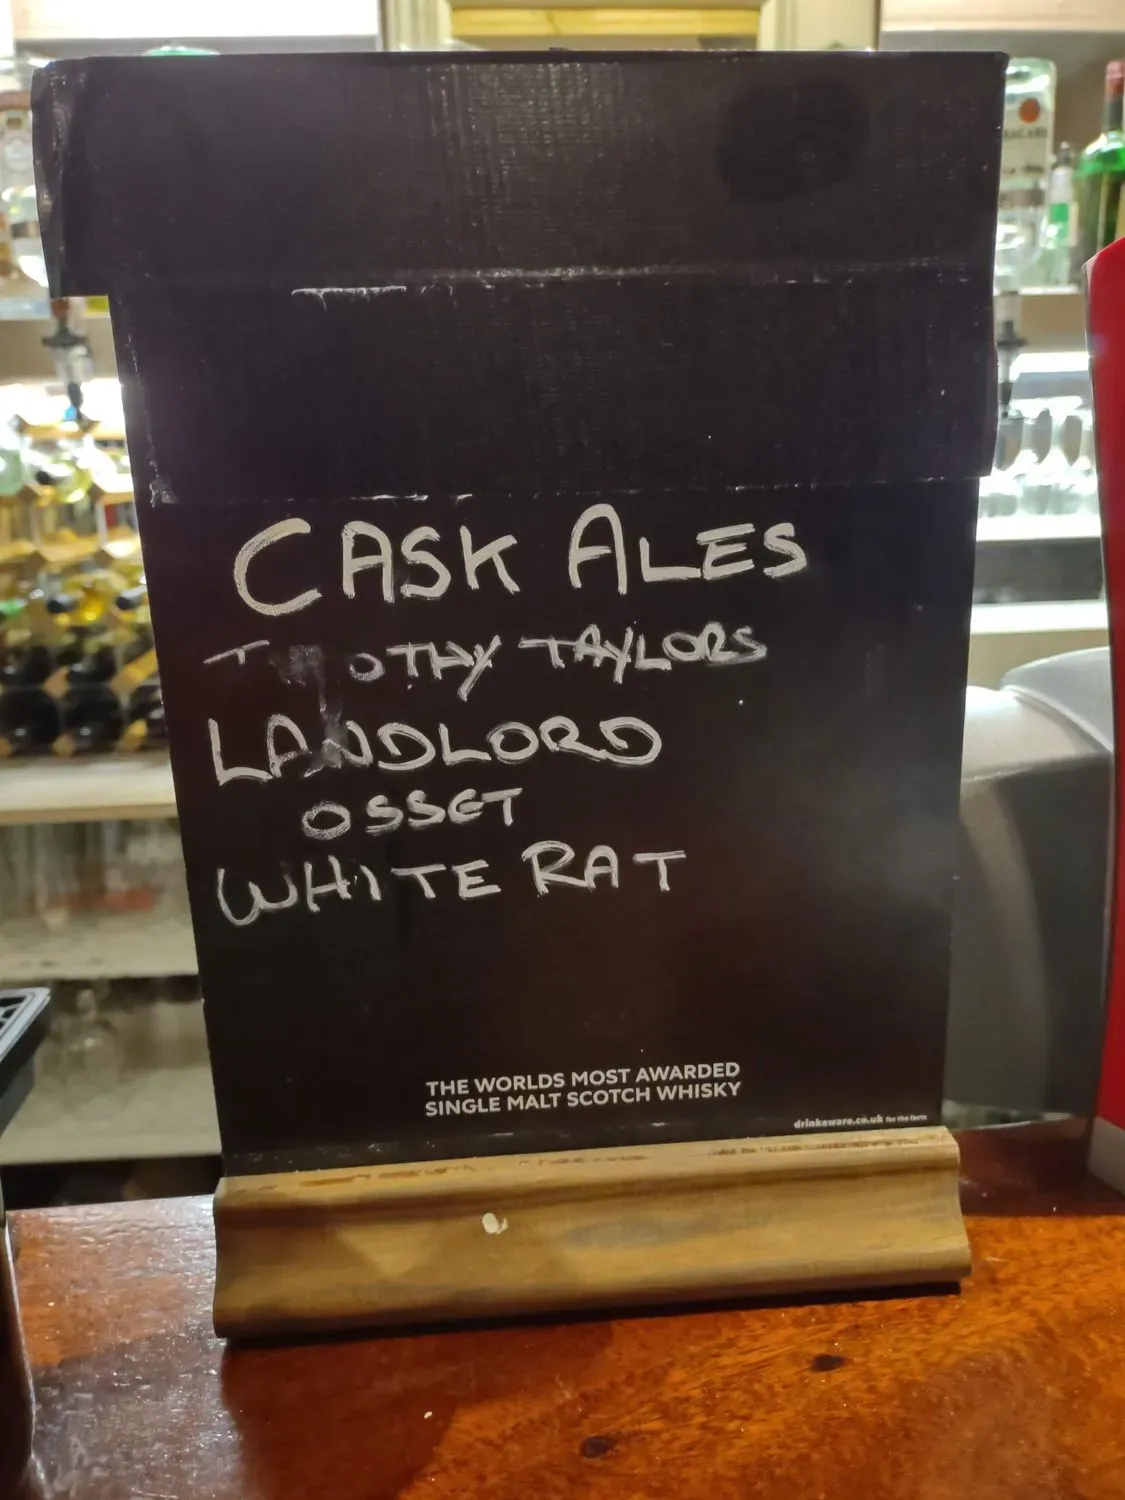 CASK ALES
TAYLORS
LANDLORD
OSSET
WHITE RAT
THE WORLDS MOST AWARDED
SINGLE MALT SCOTCH WHISKY
drinkaware.co.uk for the facts
BACARDI